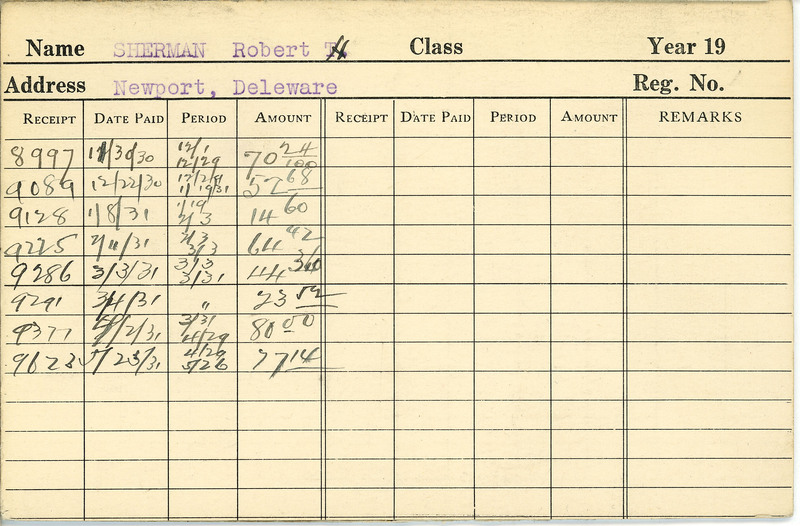 Name SHERMAN Robert H. Class Year 19
Address Newport, Deleware Reg. No.
RECEIPT DATE PAID PERIOD AMOUNT RECEIPT DATE PAID PERIOD AMOUNT REMARKS
8997 11/30/30 12/1 12/29 70 24/100
9089 12/22/30 12/29 1/19/31 52 68
9128 1/8/31 1/19 2/3 14 60
9225 2/11/31 2/3 3/3 64 42
9286 3/3/31 3/3 3/31 44
9291 3/4/31 " 23 52
9377 4/2/31 3/31 4/29 80 00
9623 5/23/31 4/29 5/26 77 14